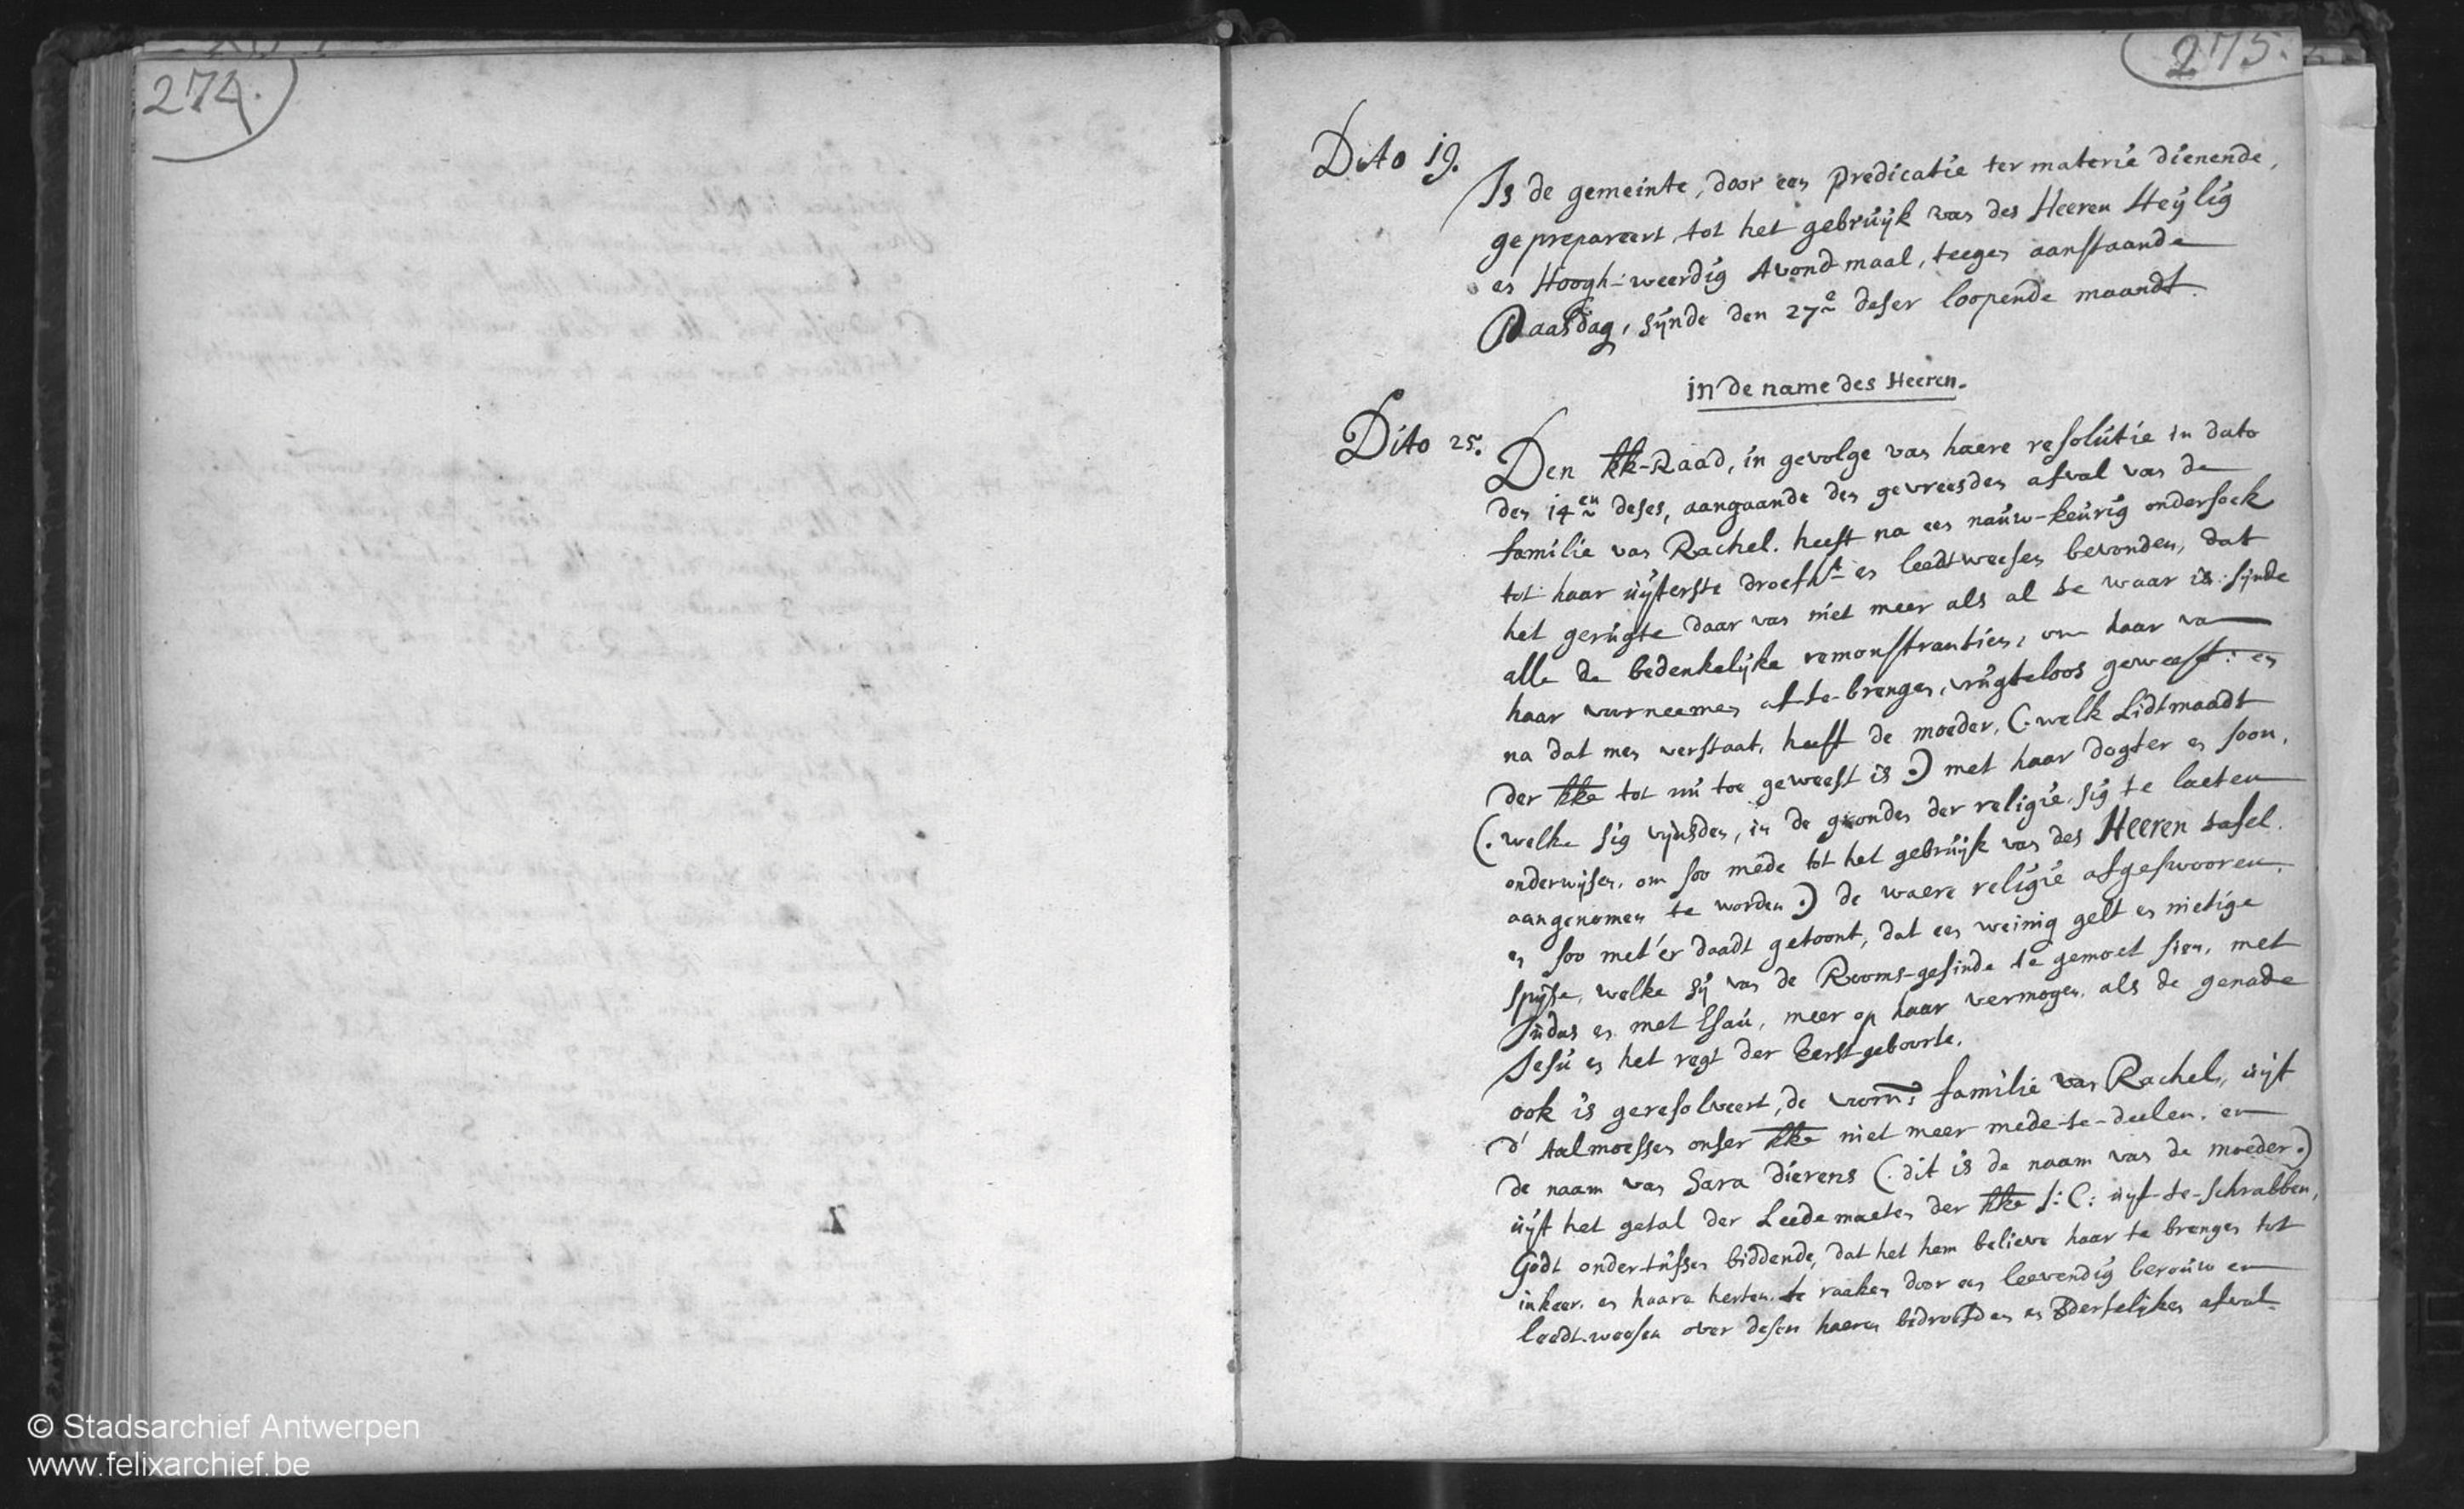 274.
275.
Dito 19.
Is de gemeinte, door een predicatie ter materie dienende,
geprepareert, tot het gebruijk van des Heeren Heylig
en Hoogh-weerdig Avondmaal, teegen aanstaande
Paasdag, sijnde den 27e deser loopende maandt.
in de name des Heeren.
Dito 25.
Den kk-Raad, in gevolge van haere resolutie in dato
den 14en deses, aangaande den gevreesden afval van de
familie van Rachel. heeft na een nauw-keurig ondersoek
tot haar uijterste droefht en leedtweesen bevonden, dat
het gerugte daar van niet meer als al te waar is: sijnde
alle de bedenkelijke remonstrantien, om haar van
haar voorneemen af-te-brengen, vrugteloos geweest: en
na dat men verstaat, heeft de moeder, (. welk Lidtmaadt
der kke tot nu toe geweest is .) met haar dogter en soon,
(. welke sig vijnsden, in de gronden der religie, sig te laeten
onderwijsen, om soo mede tot het gebruijk van des Heeren tafel.
aangenomen te worden .) de waere religie afgeswooren.
en soo met'er daadt getoont, dat een weinig gelt en nietige
spijse, welke sij van de Rooms-gesinde te gemoet sien, met
Judas en met Esau, meer op haar vermogen, als de genade
Jesu en het regt der Eerstgeboorte.
ook is geresolveert, de voorn: familie van Rachel, uijt
d' Aalmoessen onser kke niet meer mede-te-deelen. en
de naam van Sara Dierens (. dit is de naam van de moeder .)
uijt het getal der Leedemaeten der kke J: C: uijt-te-schrabben,
Godt ondertussen biddende, dat het hem believe haar te brengen tot
inkeer. en haare herten te raaken door een leevendig berouw en
leedt-weesen over desen haeren bedroefden en verderfelijken afval.
© Stadsarchief Antwerpen
www.felixarchief.be